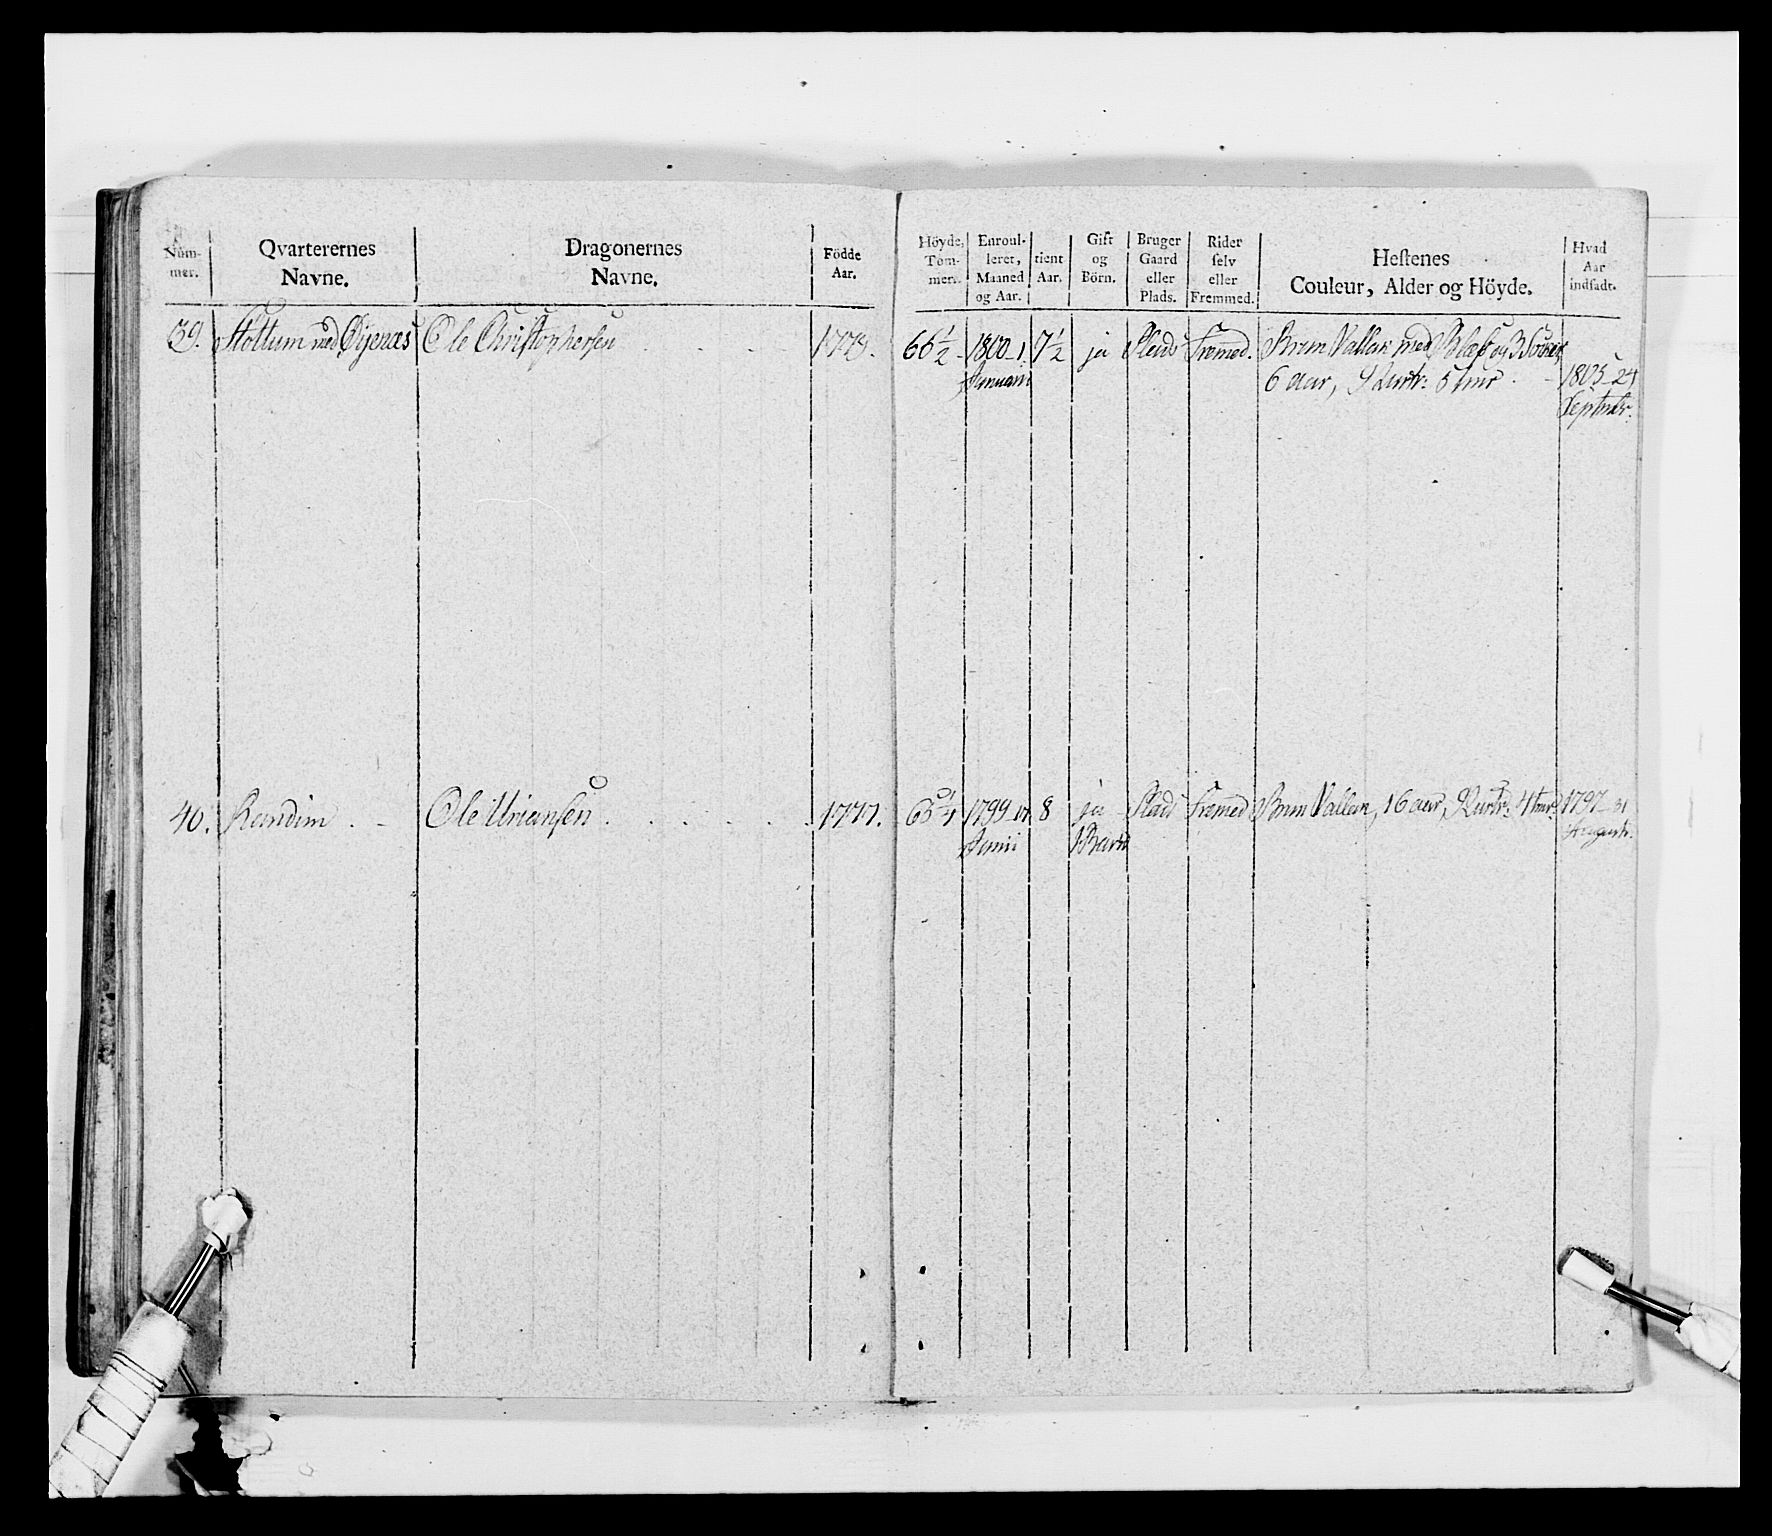 Num-
mer.
Qvarterernes
Navne.
Dragonernes
Navne.
Födde
Aar.
Höyde,
Tom-
mer.
Enroul-
leret,
Maaned
og Aar.
tient
Aar.
Gift
og
Börn.
Bruger
Gaard
eller
Plads.
Rider
selv
eller
Fremmed.
Hestenes
Couleur, Alder og Höyde.
Hvad
Aar
indsadt.
39. Stottum med Ole Christophersen 66½ 1800 1. 7½ ja Plads Fremed. Brun Vallak med Blæs og 3 Sokker
Januarii 6 aar, 1805 24
Septmbr.
40. Randim Ole Uriansen 1777. 65¼ 1799 8 ja Plads Fremed Brun Vallak, 16 aar, Quart: 4 tmr: 1797 31
Junii 1 Barn August.